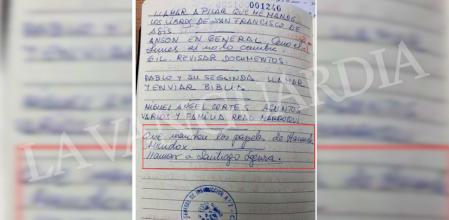 001246
LLAMAR A PILAR QUE ME MANDE
LOS LIBROS DE SAN FRANCISCO DE
ASIS.
ANSON EN GENERAL, Ceno el
lunes
GIL. REVISAR DOCUMENTOS.
PABLO Y SU SEGUNDA LLAMAR
Y ENVIAR BIBLIA
MIGUEL ANGEL CORTES ASUNTOS
VARIOS Y FAMILIA REAL MARROQUI
Que manden los papeles de
Mendoz
llamar a Santiago Segura.
LA VANGUARDIA